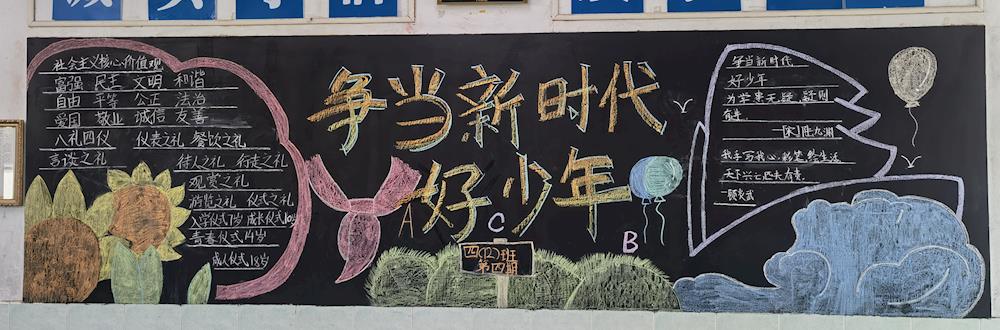 社会主义核心价值观
富强 民主 文明 和谐
自由 平等 公正 法治
爱国 敬业 诚信 友善
八礼四仪 仪表之礼 餐饮之礼
言谈之礼 待人之礼 行走之礼
观赏之礼
游览之礼 仪式之礼
入学仪式7岁 成长仪式10岁
青春仪式14岁
成人仪式18岁
争当新时代
好少年
A
C
B
四(12)班
第四期
争当新时代
好少年
为学患无疑,疑则
有进
—[宋]陆九渊
我手写我心,彩笔绘生活
天下兴亡匹夫有责
—顾炎武